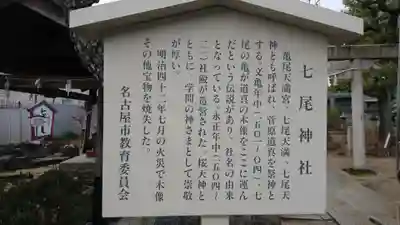 七尾神社
亀尾天満宮、七尾天満、七尾天
神とも呼ばれ、菅原道真を祭神と
する。文亀年中(一五〇一〜〇四)、七
尾の亀が道真の木像をここに運ん
だという伝説があり、社名の由来
となっている。永正年中(一五〇四〜
二一)社殿が造営された。桜天神と
ともに学問の神さまとして崇敬
が厚い。
明治四十二年七月の火災で木像
その他宝物を焼失した。
名古屋市教育委員会